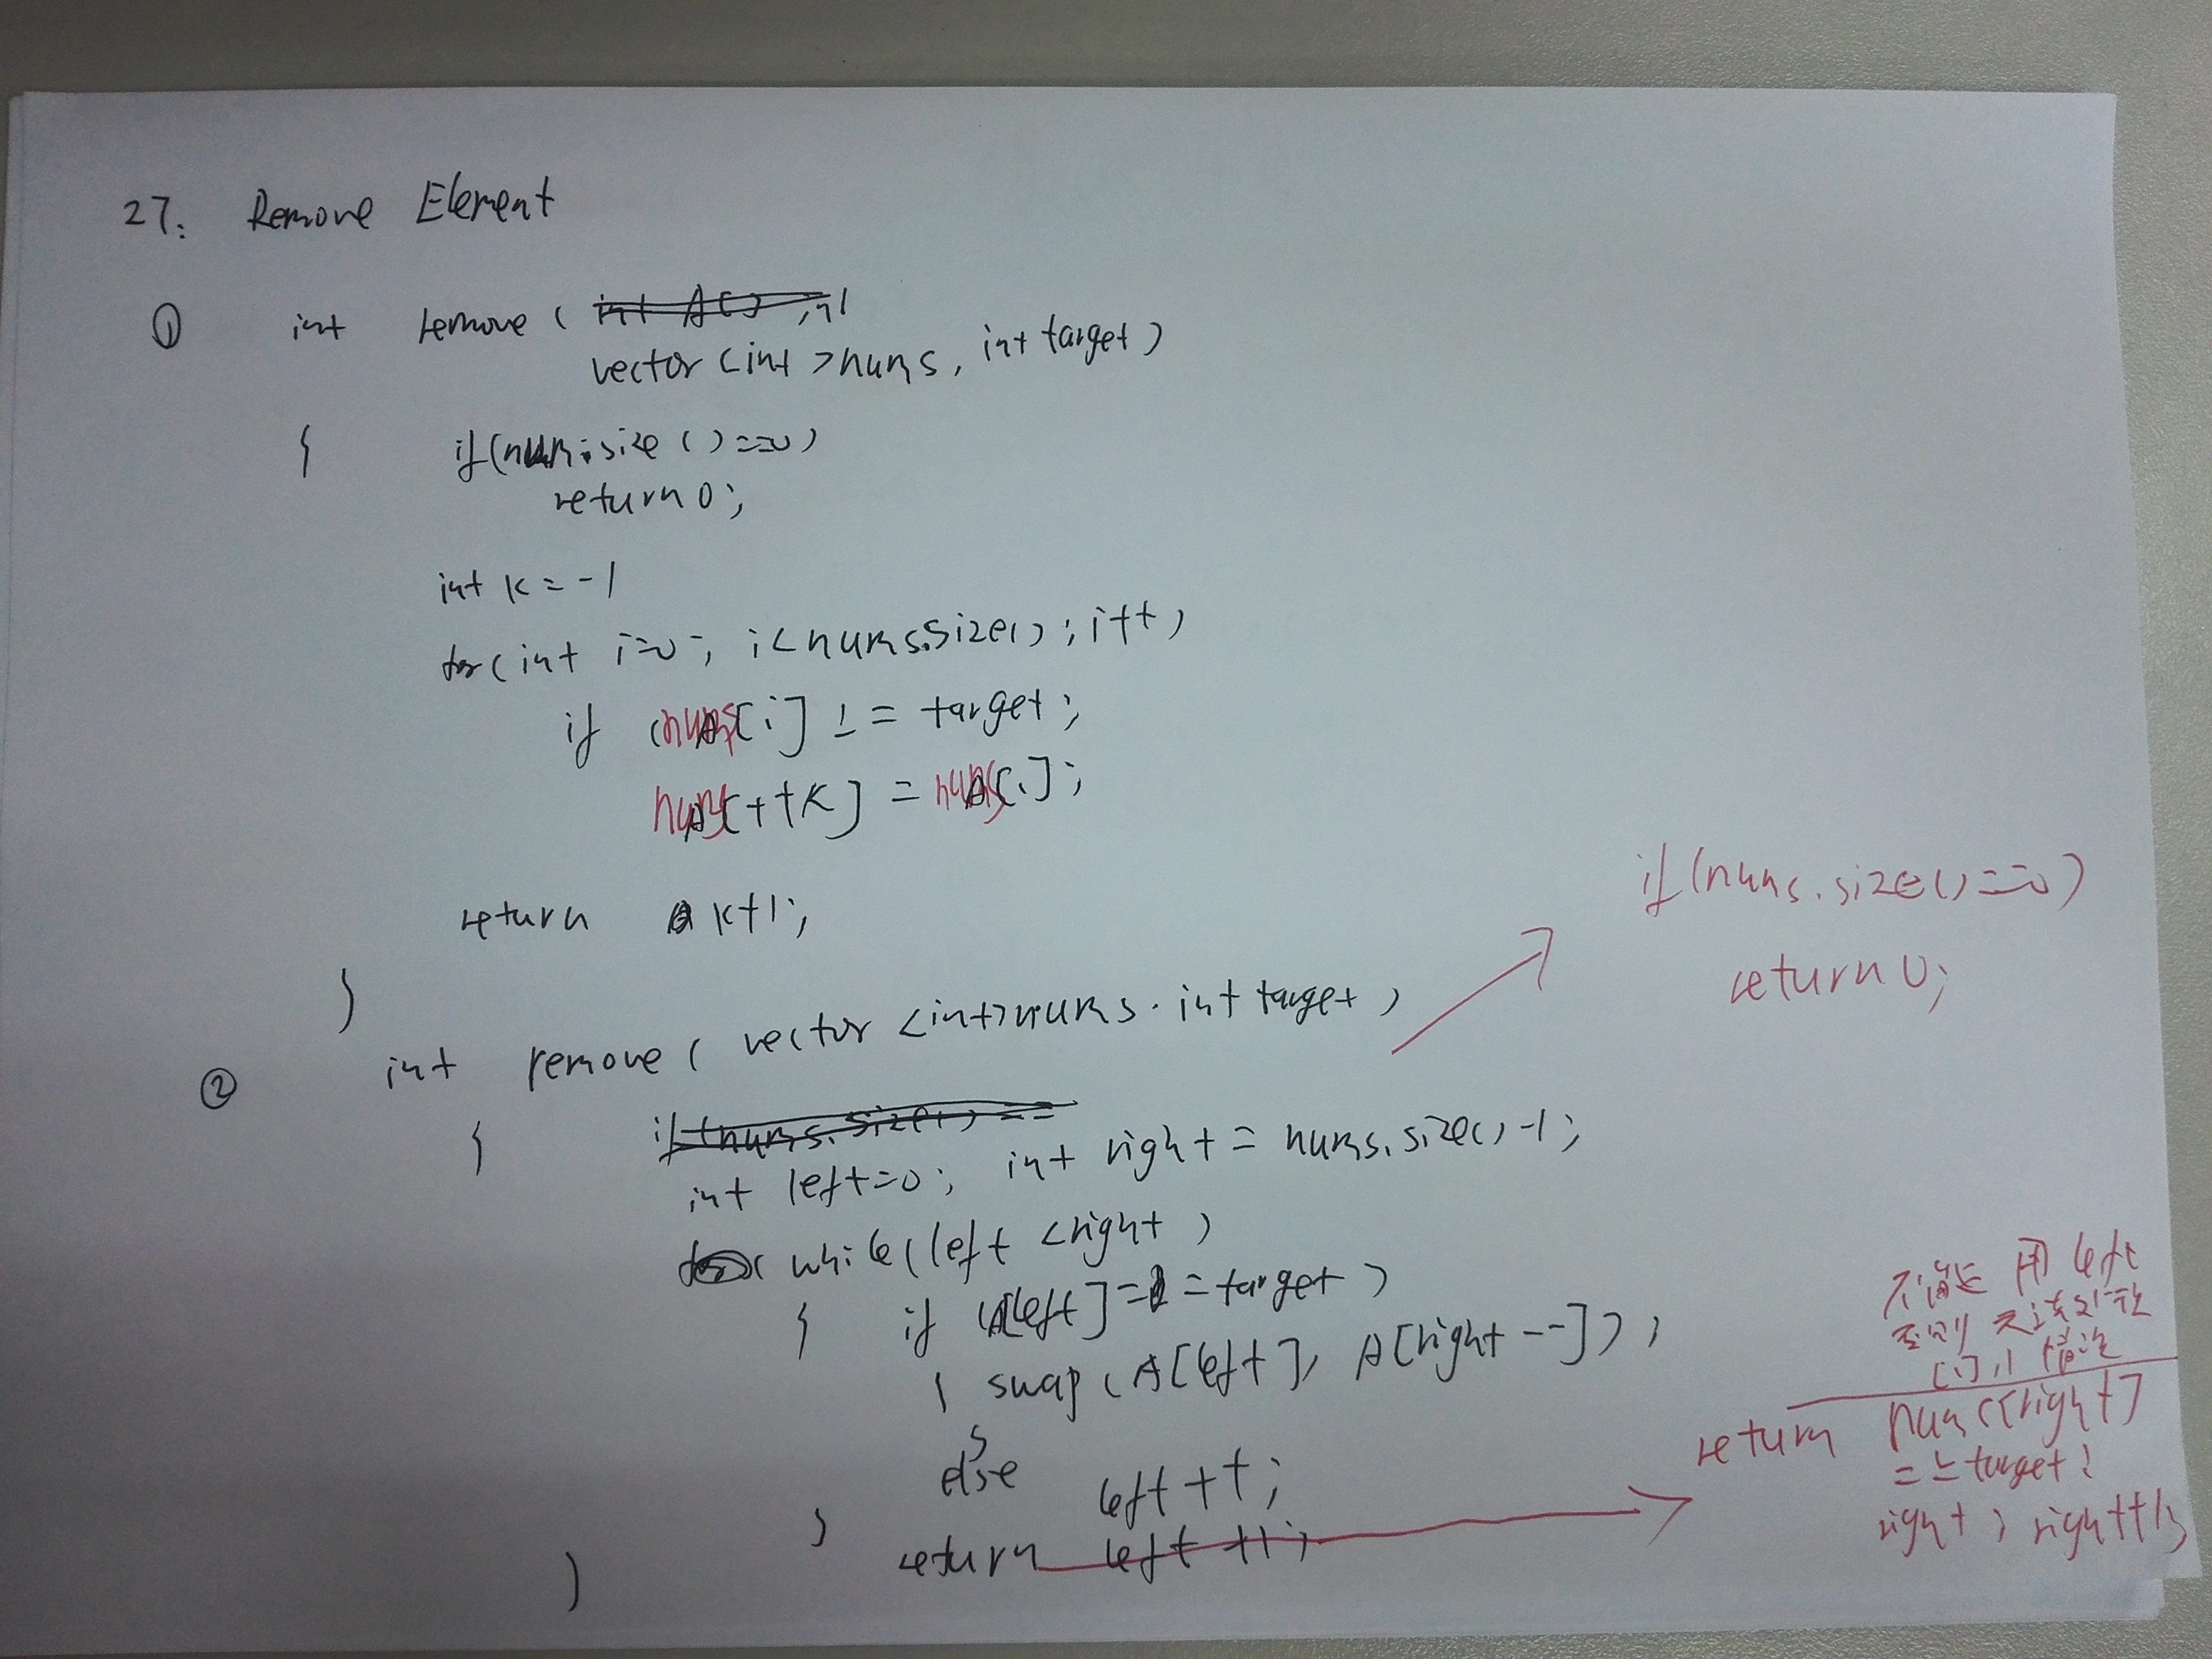 27. Remove Element
① int remove ( int A[] , int
vector<int>nums, int target)
{ if(nums.size()==0)
return 0;
int k=-1
for(int i=0; i<nums.size(); i++)
if (nums[i] != target;
nums[++k] = nums[i];
return k+1;
}
② int remove( vector<int>nums. int target)
if(nums.size()==0)
return 0;
{ if (nums.size() ==
int left=0; int right = nums.size()-1;
while(left <right)
{ if (A[left]==target)
{ swap(A[left], A[right--]);
}
else left++;
}
return left+1;
}
不能用left
否则
[1],1
return nums[right]
==target?
right; right+1;